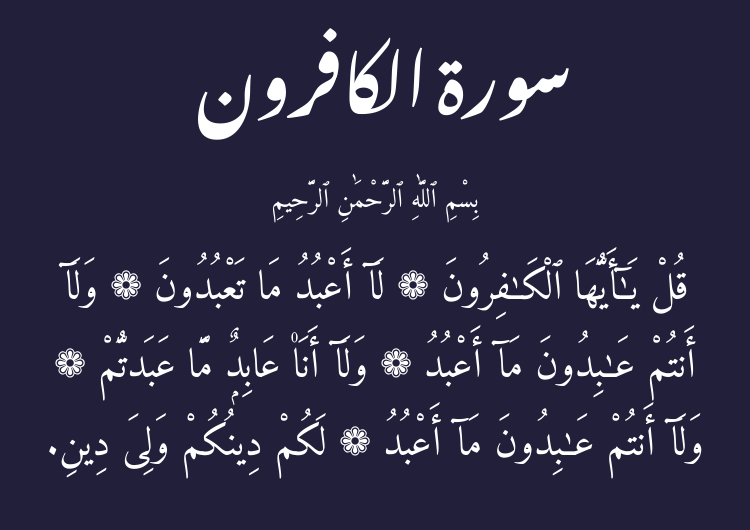 سورة الكافرون
بِسْمِ ٱللَّهِ ٱلرَّحْمَٰنِ ٱلرَّحِيمِ
قُلْ يَـٰٓأَيُّهَا ٱلْكَـٰفِرُونَ ❁ لَآ أَعْبُدُ مَا تَعْبُدُونَ ❁ وَلَآ
أَنتُمْ عَـٰبِدُونَ مَآ أَعْبُدُ ❁ وَلَآ أَنَا۠ عَابِدٌۭ مَّا عَبَدتُّمْ ❁
وَلَآ أَنتُمْ عَـٰبِدُونَ مَآ أَعْبُدُ ❁ لَكُمْ دِينُكُمْ وَلِىَ دِينِ.